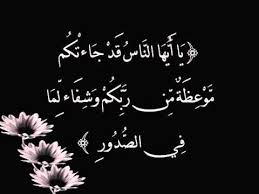 ﴿ يَا أَيُّهَا النَّاسُ قَدْ جَاءَتْكُم
مَّوْعِظَةٌ مِّن رَّبِّكُمْ وَشِفَاءٌ لِّمَا
فِي الصُّدُورِ ﴾